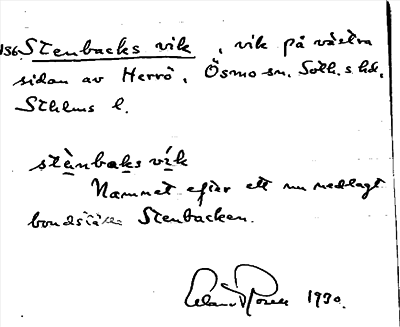 156. Stenbacks vik, vik på västra
sidan av Herrö, Ösmo sn. Soth. s. hd.
Sthlms l.
stènbaks vík
Namnet efter ett nu nedlagt
bondställe Stenbacken.
1930.